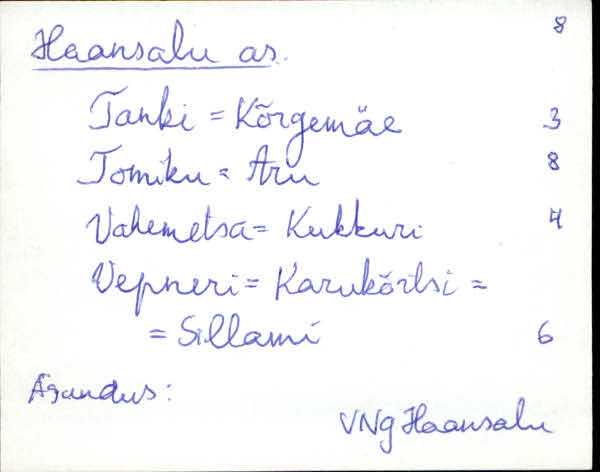 8
Haansalu as.
Tanki = Kõrgemäe 3
Tomiku = Aru 8
Vahemetsa = Kukkuri 4
Vepneri = Karukõrtsi =
= Sillami 6
Asundus:
VNg Haansalu